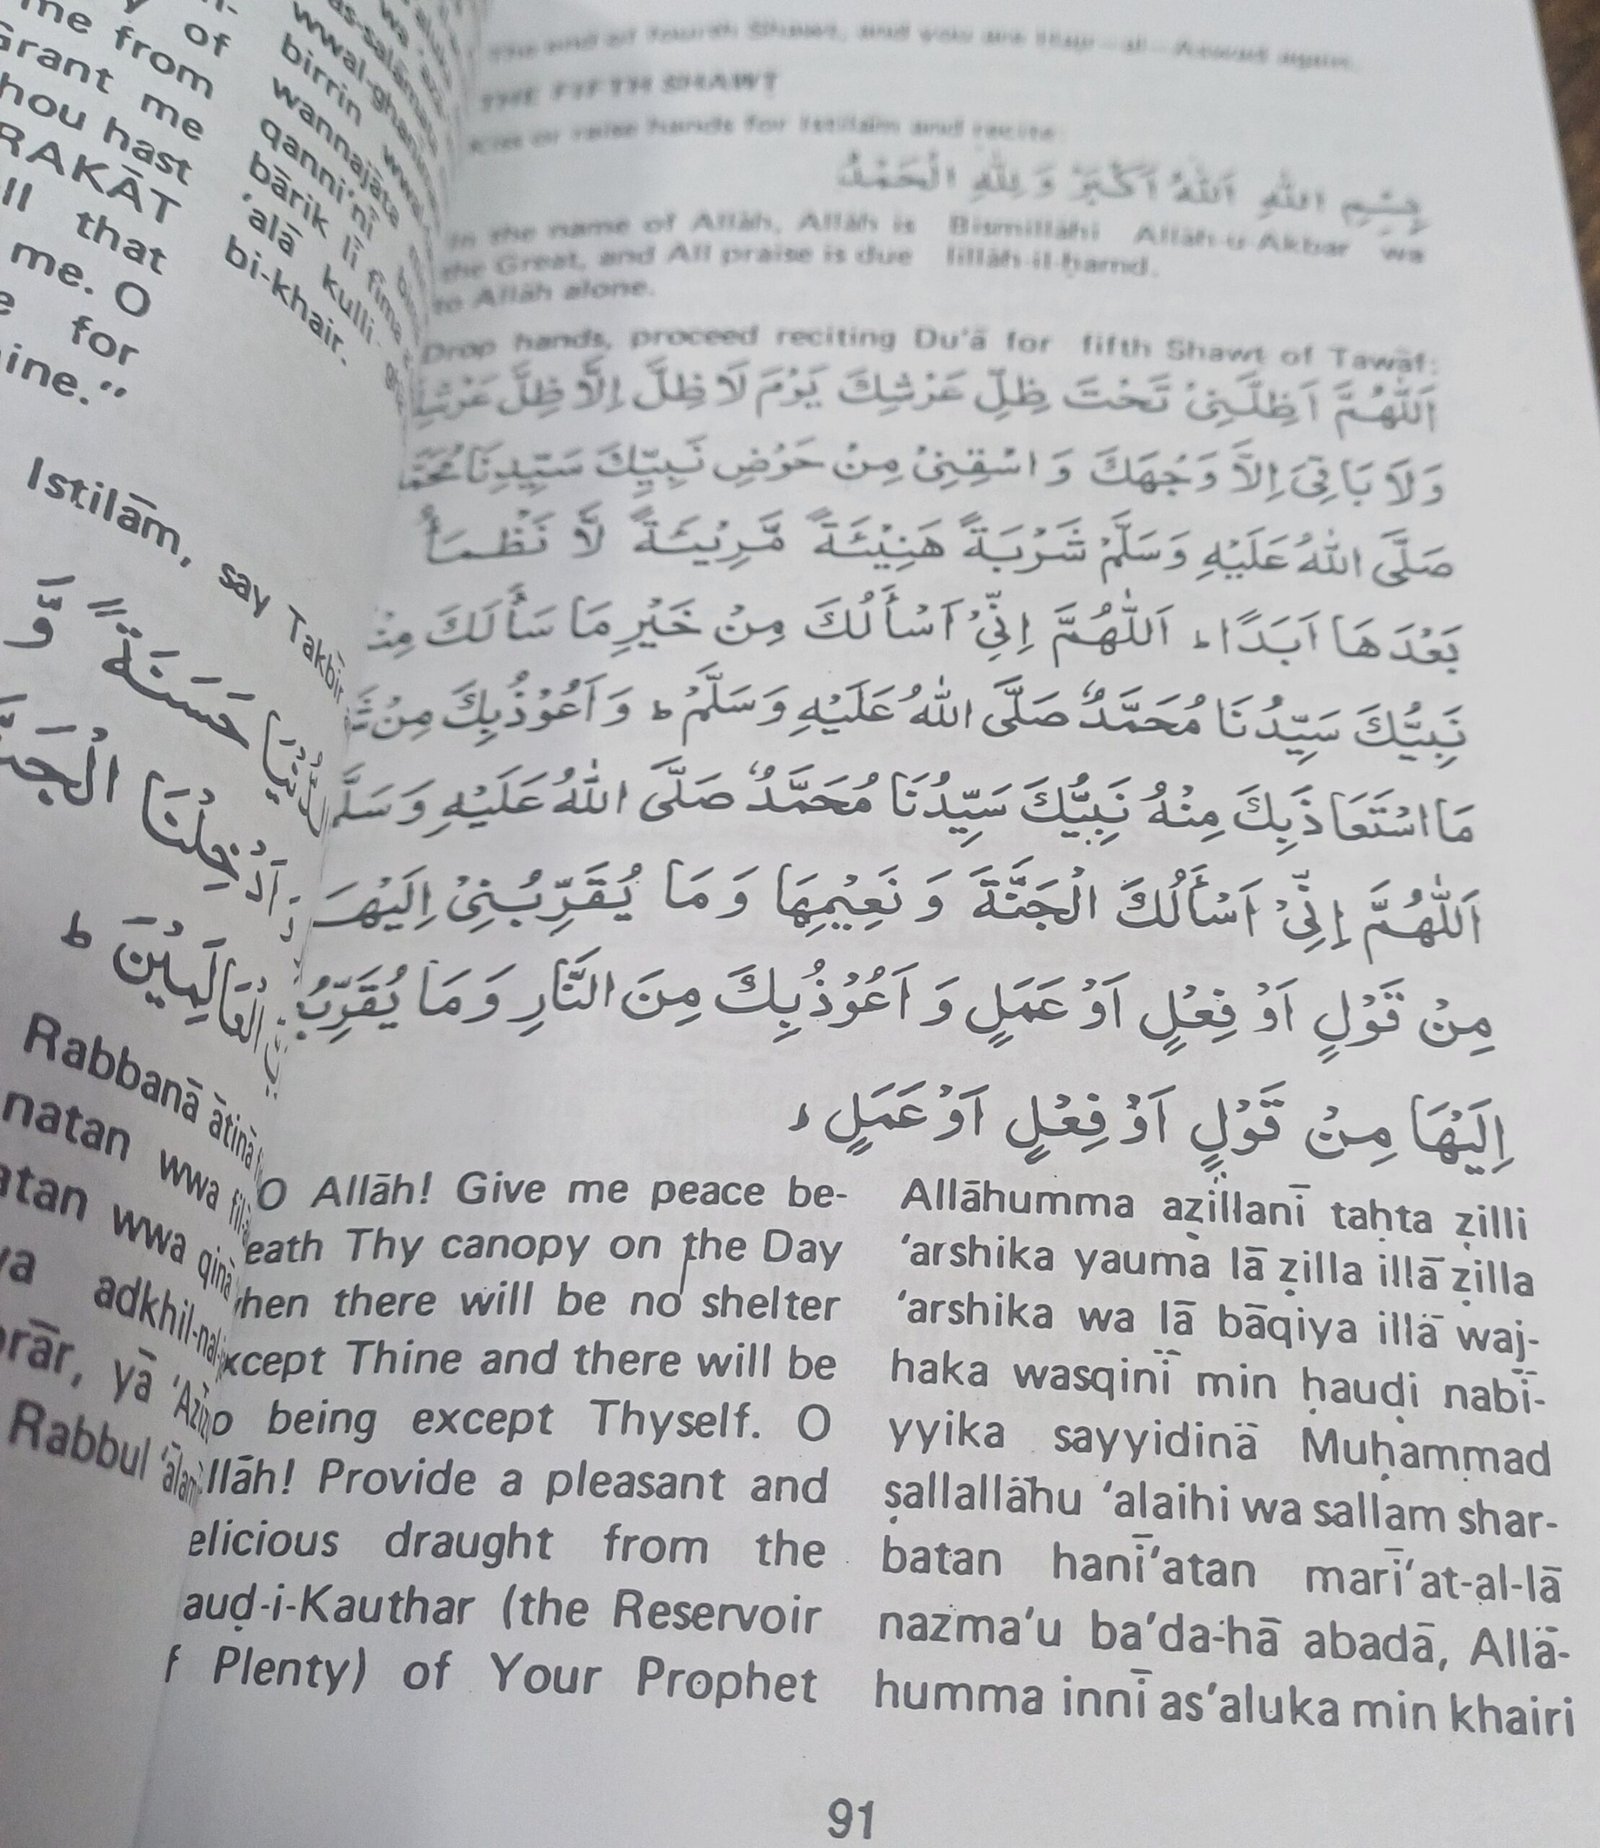 me from
Grant me
hou hast
RAKĀT
ll that
me. O
for
ine."
of
birrin
wannajāta
qanni'nī
bārik lī fīmā
'alā kulli
bi-khair.
Istilām, say Takbīr
حَسَنَةً وَّ
وَاَدْخِلْنَا الْجَنَّ
الْعَالَمِيْنَ ط
Rabbanā ātinā
natan wwa fil-
atan wwa qinā
adkhil-nal-
rār, yā 'Azīz
Rabbul 'ālam
The end of fourth Shawt, and you are Hajr-al-Aswad again.
THE FIFTH SHAWṬ
Kiss or raise hands for Istilām and recite:
بِسْمِ اللهِ اَللهُ اَكْبَرُ وَ لِلّٰهِ الْحَمْدُ
In the name of Allāh, Allāh is
the Great, and All praise is due
to Allāh alone.
Bismillāhi Allāh-u-Akbar wa
lillāh-il-ḥamd.
Drop hands, proceed reciting Du'ā for fifth Shawt of Tawāf:
اَللّٰهُمَّ اَظِلَّنِىْ تَحْتَ ظِلِّ عَرْشِكَ يَوْمَ لَا ظِلَّ اِلَّا ظِلَّ عَرْشِ
وَلَا بَاقِىَ اِلَّا وَجْهَكَ وَاسْقِنِىْ مِنْ حَوْضِ نَبِيِّكَ سَيِّدِنَا مُحَمَّ
صَلَّى اللهُ عَلَيْهِ وَسَلَّمْ شَرْبَةً هَنِيْئَةً مَّرِيْئَةً لَّا نَظْمَأُ
بَعْدَهَا اَبَدًا ط اَللّٰهُمَّ اِنِّىْ اَسْأَلُكَ مِنْ خَيْرِ مَا سَأَلَكَ مِنْ
نَبِيُّكَ سَيِّدُنَا مُحَمَّدٌ صَلَّى اللهُ عَلَيْهِ وَسَلَّمْ ط وَاَعُوْذُبِكَ مِنْ شَ
مَا اسْتَعَاذَبِكَ مِنْهُ نَبِيُّكَ سَيِّدُنَا مُحَمَّدٌ صَلَّى اللهُ عَلَيْهِ وَسَلَّ
اَللّٰهُمَّ اِنِّىْ اَسْأَلُكَ الْجَنَّةَ وَ نَعِيْمِهَا وَ مَا يُقَرِّبُنِىْ اِلَيْهَ
مِنْ قَوْلٍ اَوْ فِعْلٍ اَوْ عَمَلٍ وَ اَعُوْذُبِكَ مِنَ النَّارِ وَ مَا يُقَرِّبُ
اِلَيْهَا مِنْ قَوْلٍ اَوْ فِعْلٍ اَوْ عَمَلٍ ط
O Allāh! Give me peace be-
eath Thy canopy on the Day
hen there will be no shelter
xcept Thine and there will be
o being except Thyself. O
llāh! Provide a pleasant and
elicious draught from the
auḍ-i-Kauthar (the Reservoir
f Plenty) of Your Prophet
Allāhumma aẓillanī taḥta ẓilli
'arshika yauma lā ẓilla illā ẓilla
'arshika wa lā bāqiya illā waj-
haka wasqinī min ḥauḍi nabī-
yyika sayyidinā Muḥammad
ṣallallāhu 'alaihi wa sallam shar-
batan hanī'atan marī'at-al-lā
nazma'u ba'da-hā abadā, Allā-
humma innī as'aluka min khairi
91